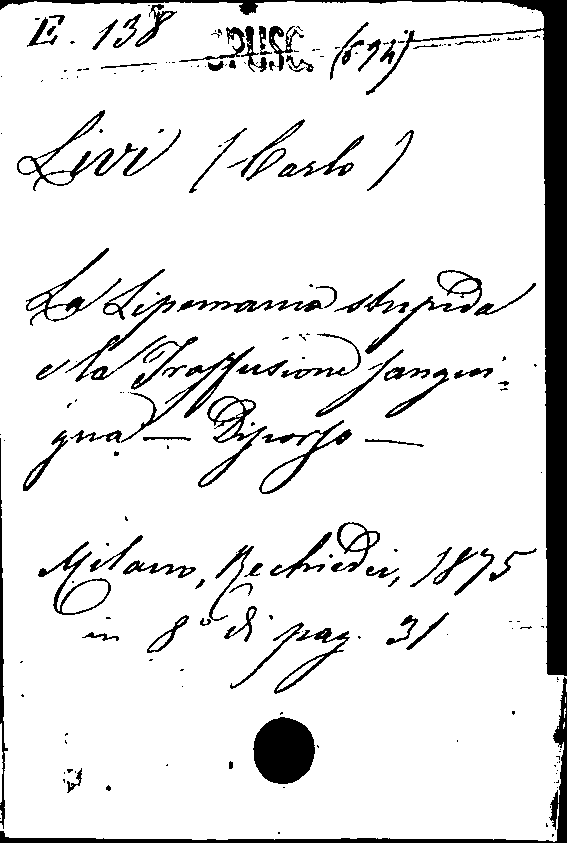 E. 138 OPUSC. (694)
Livi (Carlo)
La Lipemania stupida
e la Trasfusione sangui=
gna — Discorso —
Milano, Rechiedei, 1875
in 8° di pag. 31